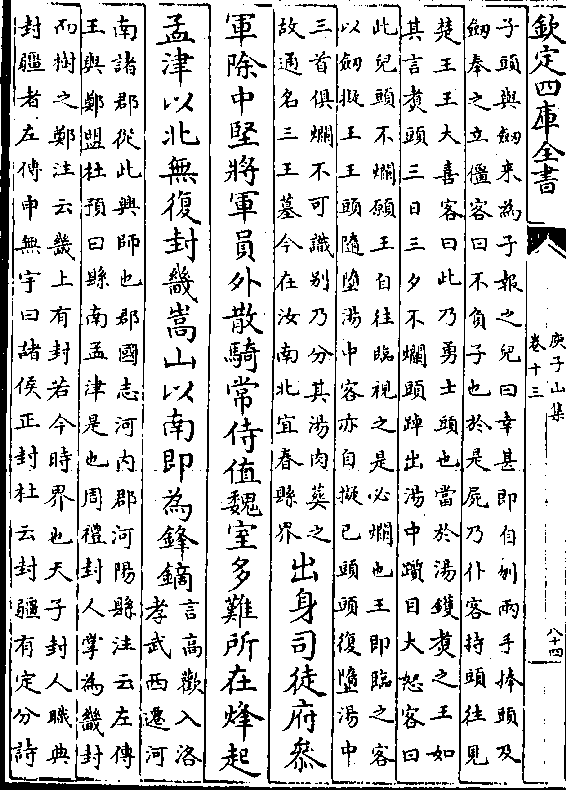 欽定四庫全書
庾子山集
卷十三
八十四
子頭與劒来為子報之兒曰幸甚即自刎兩手捧頭及
劒奉之立僵客曰不負子也於是屍乃仆客持頭往見
楚王王大喜客曰此乃勇士頭也當於湯鑊煑之王如
其言煑頭三日三夕不爛頭踔出湯中躓目大怒客曰
此兒頭不爛願王自往臨視之是必爛也王即臨之客
以劒擬王王頭隨墮湯中客亦自擬已頭頭復墮湯中
三首俱爛不可識别乃分其湯肉葬之
故通名三王墓今在汝南北宜春縣界
出身司徒府叅
軍除中堅將軍員外散騎常侍值魏室多難所在烽起
孟津以北無復封畿嵩山以南即為鋒鏑
言高歡入洛
孝武西遷河
南諸郡從此興師也郡國志河内郡河陽縣注云左傳
王與鄭盟杜預曰縣南孟津是也周禮封人掌為畿封
而樹之鄭注云畿上有封若今時界也天子封人職典
封疆者左傳申無宇曰諸侯正封杜云封疆有定分詩